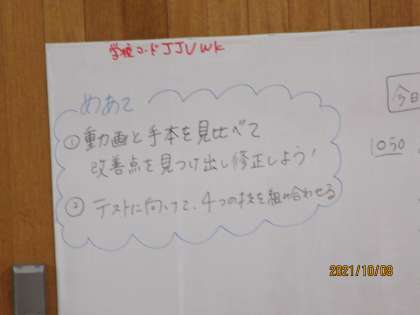 学校コード JJUWK
めあて
① 動画と手本を見比べて
改善点を見つけ出し修正しよう!
② テストに向けて、4つの技を組み合わせる
今日
10:50
2021/10/08